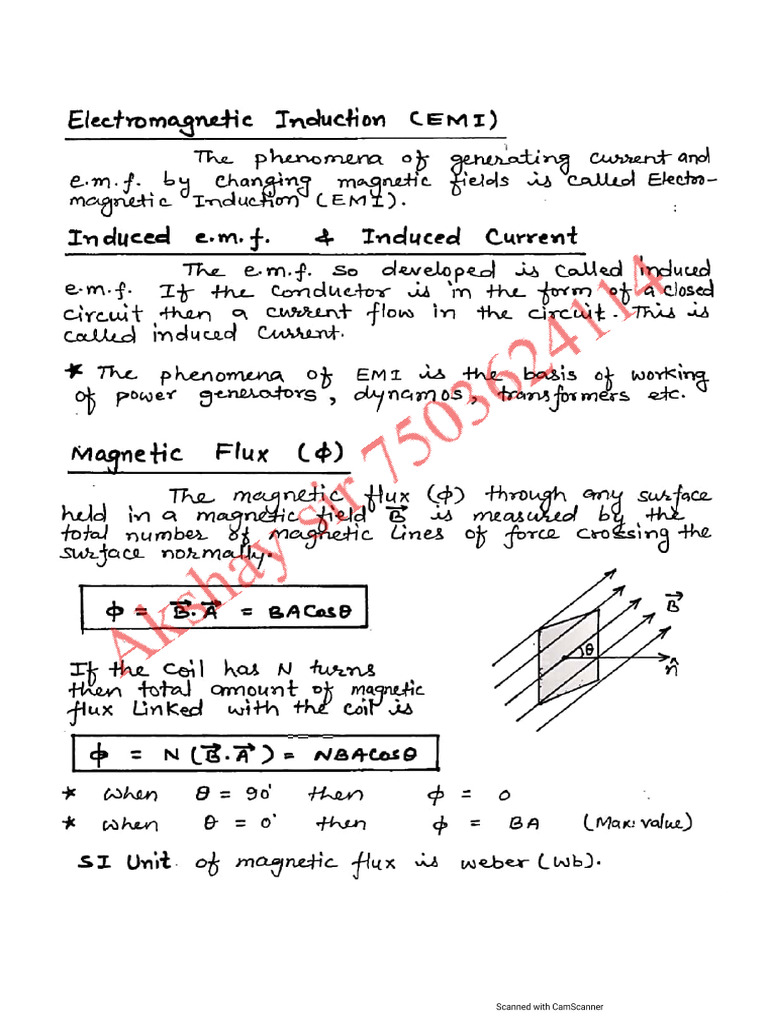 Electromagnetic Induction (EMI)
The phenomena of generating current and
e.m.f. by changing magnetic fields is called Electro-
magnetic Induction (EMI).
Induced e.m.f. & Induced Current
The e.m.f. so developed is called induced
e.m.f. If the conductor is in the form of a closed
circuit then a current flow in the circuit. This is
called induced current.
* The phenomena of EMI is the basis of working
of power generators, dynamos, transformers etc.
Magnetic Flux (ϕ)
The magnetic flux (ϕ) through any surface
held in a magnetic field B⃗ is measured by the
total number of magnetic lines of force crossing the
surface normally.
ϕ = B⃗.A⃗ = BACosθ
B⃗
θ
n̂
If the coil has N turns
then total amount of magnetic
flux linked with the coil is
ϕ = N(B⃗.A⃗) = NBACosθ
* when θ = 90° then ϕ = 0
* when θ = 0° then ϕ = BA (Max: value)
SI Unit of magnetic flux is weber (Wb).
Akshay sir 7503624114
Scanned with CamScanner